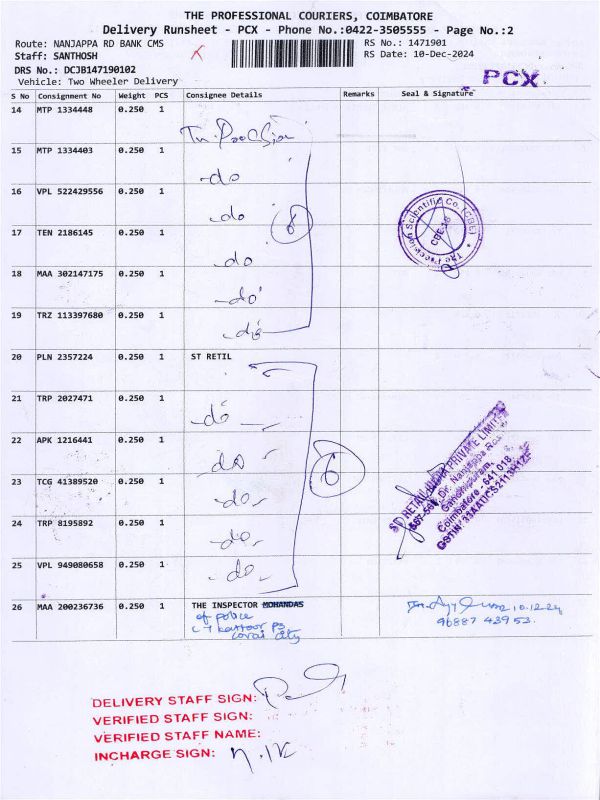 THE PROFESSIONAL COURIERS, COIMBATORE
Delivery Runsheet - PCX - Phone No.:0422-3505555 - Page No.:2
Route: NANJAPPA RD BANK CMS
RS No.: 1471901
Staff: SANTHOSH
RS Date: 10-Dec-2024
DRS No.: DCJB147190102
Vehicle: Two Wheeler Delivery
PCX
S No Consignment No Weight PCS Consignee Details Remarks Seal & Signature
14 MTP 1334448 0.250 1
15 MTP 1334403 0.250 1 -do
16 VPL 522429556 0.250 1 -do
17 TEN 2186145 0.250 1 -do
18 MAA 302147175 0.250 1 -do
19 TRZ 113397680 0.250 1 -do
6
Scientific Co. (CBE)
20 PLN 2357224 0.250 1 ST RETIL
21 TRP 2027471 0.250 1 -do-
22 APK 1216441 0.250 1 -do-
23 TCG 41389520 0.250 1 -do-
24 TRP 8195892 0.250 1 -do-
25 VPL 949080658 0.250 1 -do-
6
PRIVATE LIMITED
Dr. Nanjappa Road
Gandhipuram,
Coimbatore - 641 018.
26 MAA 200236736 0.250 1 THE INSPECTOR MOHANDAS
of police
Kattoor PS
Covai city
10.12.24
96887 43953.
DELIVERY STAFF SIGN:
VERIFIED STAFF SIGN:
VERIFIED STAFF NAME:
INCHARGE SIGN: